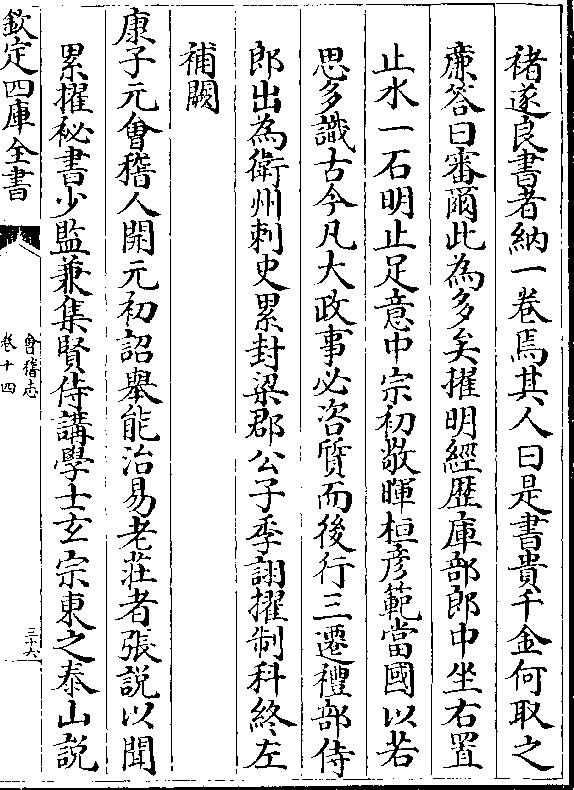 褚遂良書者納一卷焉其人曰是書貴千金何取之
廉答曰審爾此為多矣擢明經歴庫部郎中坐右置
止水一石明止足意中宗初敬暉桓彦範當國以若
思多識古今凡大政事必咨質而後行三遷禮部侍
郎出為衛州刺史累封梁郡公子季詡擢制科終左
補闕
康子元會稽人開元初詔舉能治易老莊者張説以聞
累擢秘書少監兼集賢侍講學士玄宗東之泰山説
欽定四庫全書
會稽志
卷十四
三十六